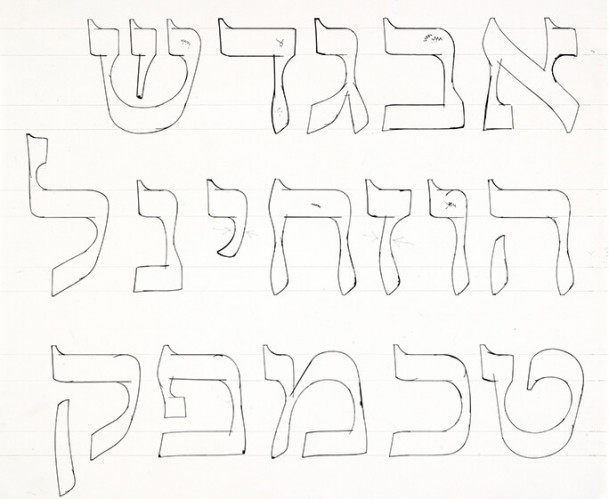 אבגדש
הוזחינל
טכמפק